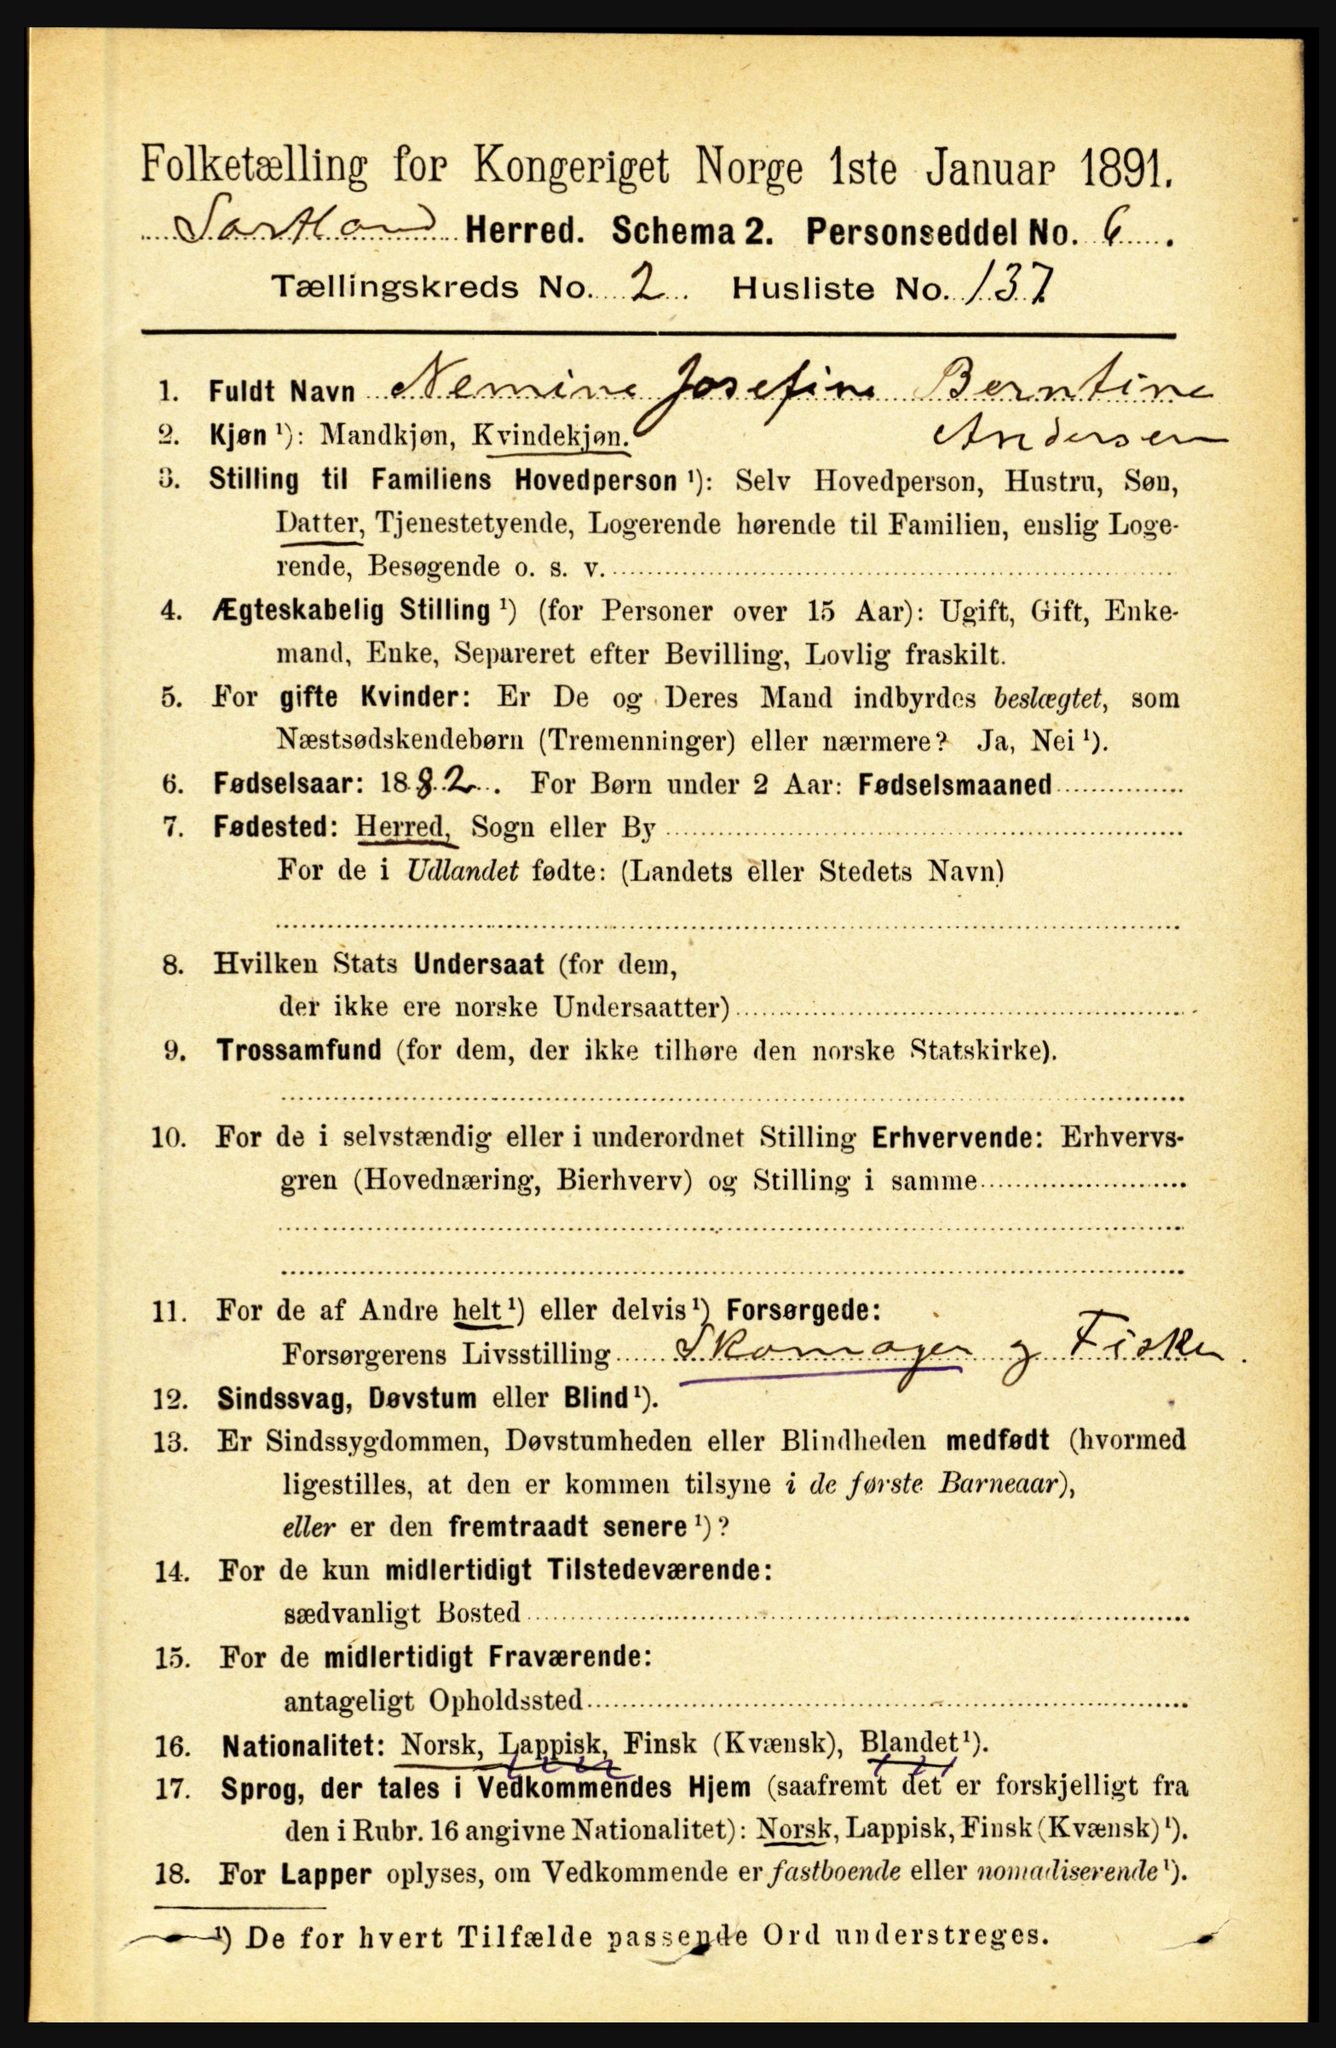 Folketælling for Kongeriget Norge 1ste Januar 1891.
Sortland Herred. Schema 2. Personseddel No. 6.
Tællingskreds No. 2. Husliste No. 137
1. Fuldt Navn Nemine Josefine Berntine
2. Kjøn ¹): Mandkjøn, Kvindekjøn. Andersen
3. Stilling til Familiens Hovedperson ¹): Selv Hovedperson, Hustru, Søn,
Datter, Tjenestetyende, Logerende hørende til Familien, enslig Loge-
rende, Besøgende o. s. v.
4. Ægteskabelig Stilling ¹) (for Personer over 15 Aar): Ugift, Gift, Enke-
mand, Enke, Separeret efter Bevilling, Lovlig fraskilt.
5. For gifte Kvinder: Er De og Deres Mand indbyrdes beslægtet, som
Næstsødskendebørn (Tremenninger) eller nærmere? Ja, Nei ¹).
6. Fødselsaar: 1882. For Børn under 2 Aar: Fødselsmaaned
7. Fødested: Herred, Sogn eller By
For de i Udlandet fødte: (Landets eller Stedets Navn)
8. Hvilken Stats Undersaat (for dem,
der ikke ere norske Undersaatter)
9. Trossamfund (for dem, der ikke tilhøre den norske Statskirke).
10. For de i selvstændig eller i underordnet Stilling Erhvervende: Erhvervs-
gren (Hovednæring, Bierhverv) og Stilling i samme
11. For de af Andre helt ¹) eller delvis ¹) Forsørgede:
Forsørgerens Livsstilling Skomager og Fisker.
12. Sindssvag, Døvstum eller Blind ¹).
13. Er Sindssygdommen, Døvstumheden eller Blindheden medfødt (hvormed
ligestilles, at den er kommen tilsyne i de første Barneaar),
eller er den fremtraadt senere ¹)?
14. For de kun midlertidigt Tilstedeværende:
sædvanligt Bosted
15. For de midlertidigt Fraværende:
antageligt Opholdssted
16. Nationalitet: Norsk, Lappisk, Finsk (Kvænsk), Blandet ¹).
17. Sprog, der tales i Vedkommendes Hjem (saafremt det er forskjelligt fra
den i Rubr. 16 angivne Nationalitet): Norsk, Lappisk, Finsk (Kvænsk) ¹).
18. For Lapper oplyses, om Vedkommende er fastboende eller nomadiserende ¹).
¹) De for hvert Tilfælde passende Ord understreges.